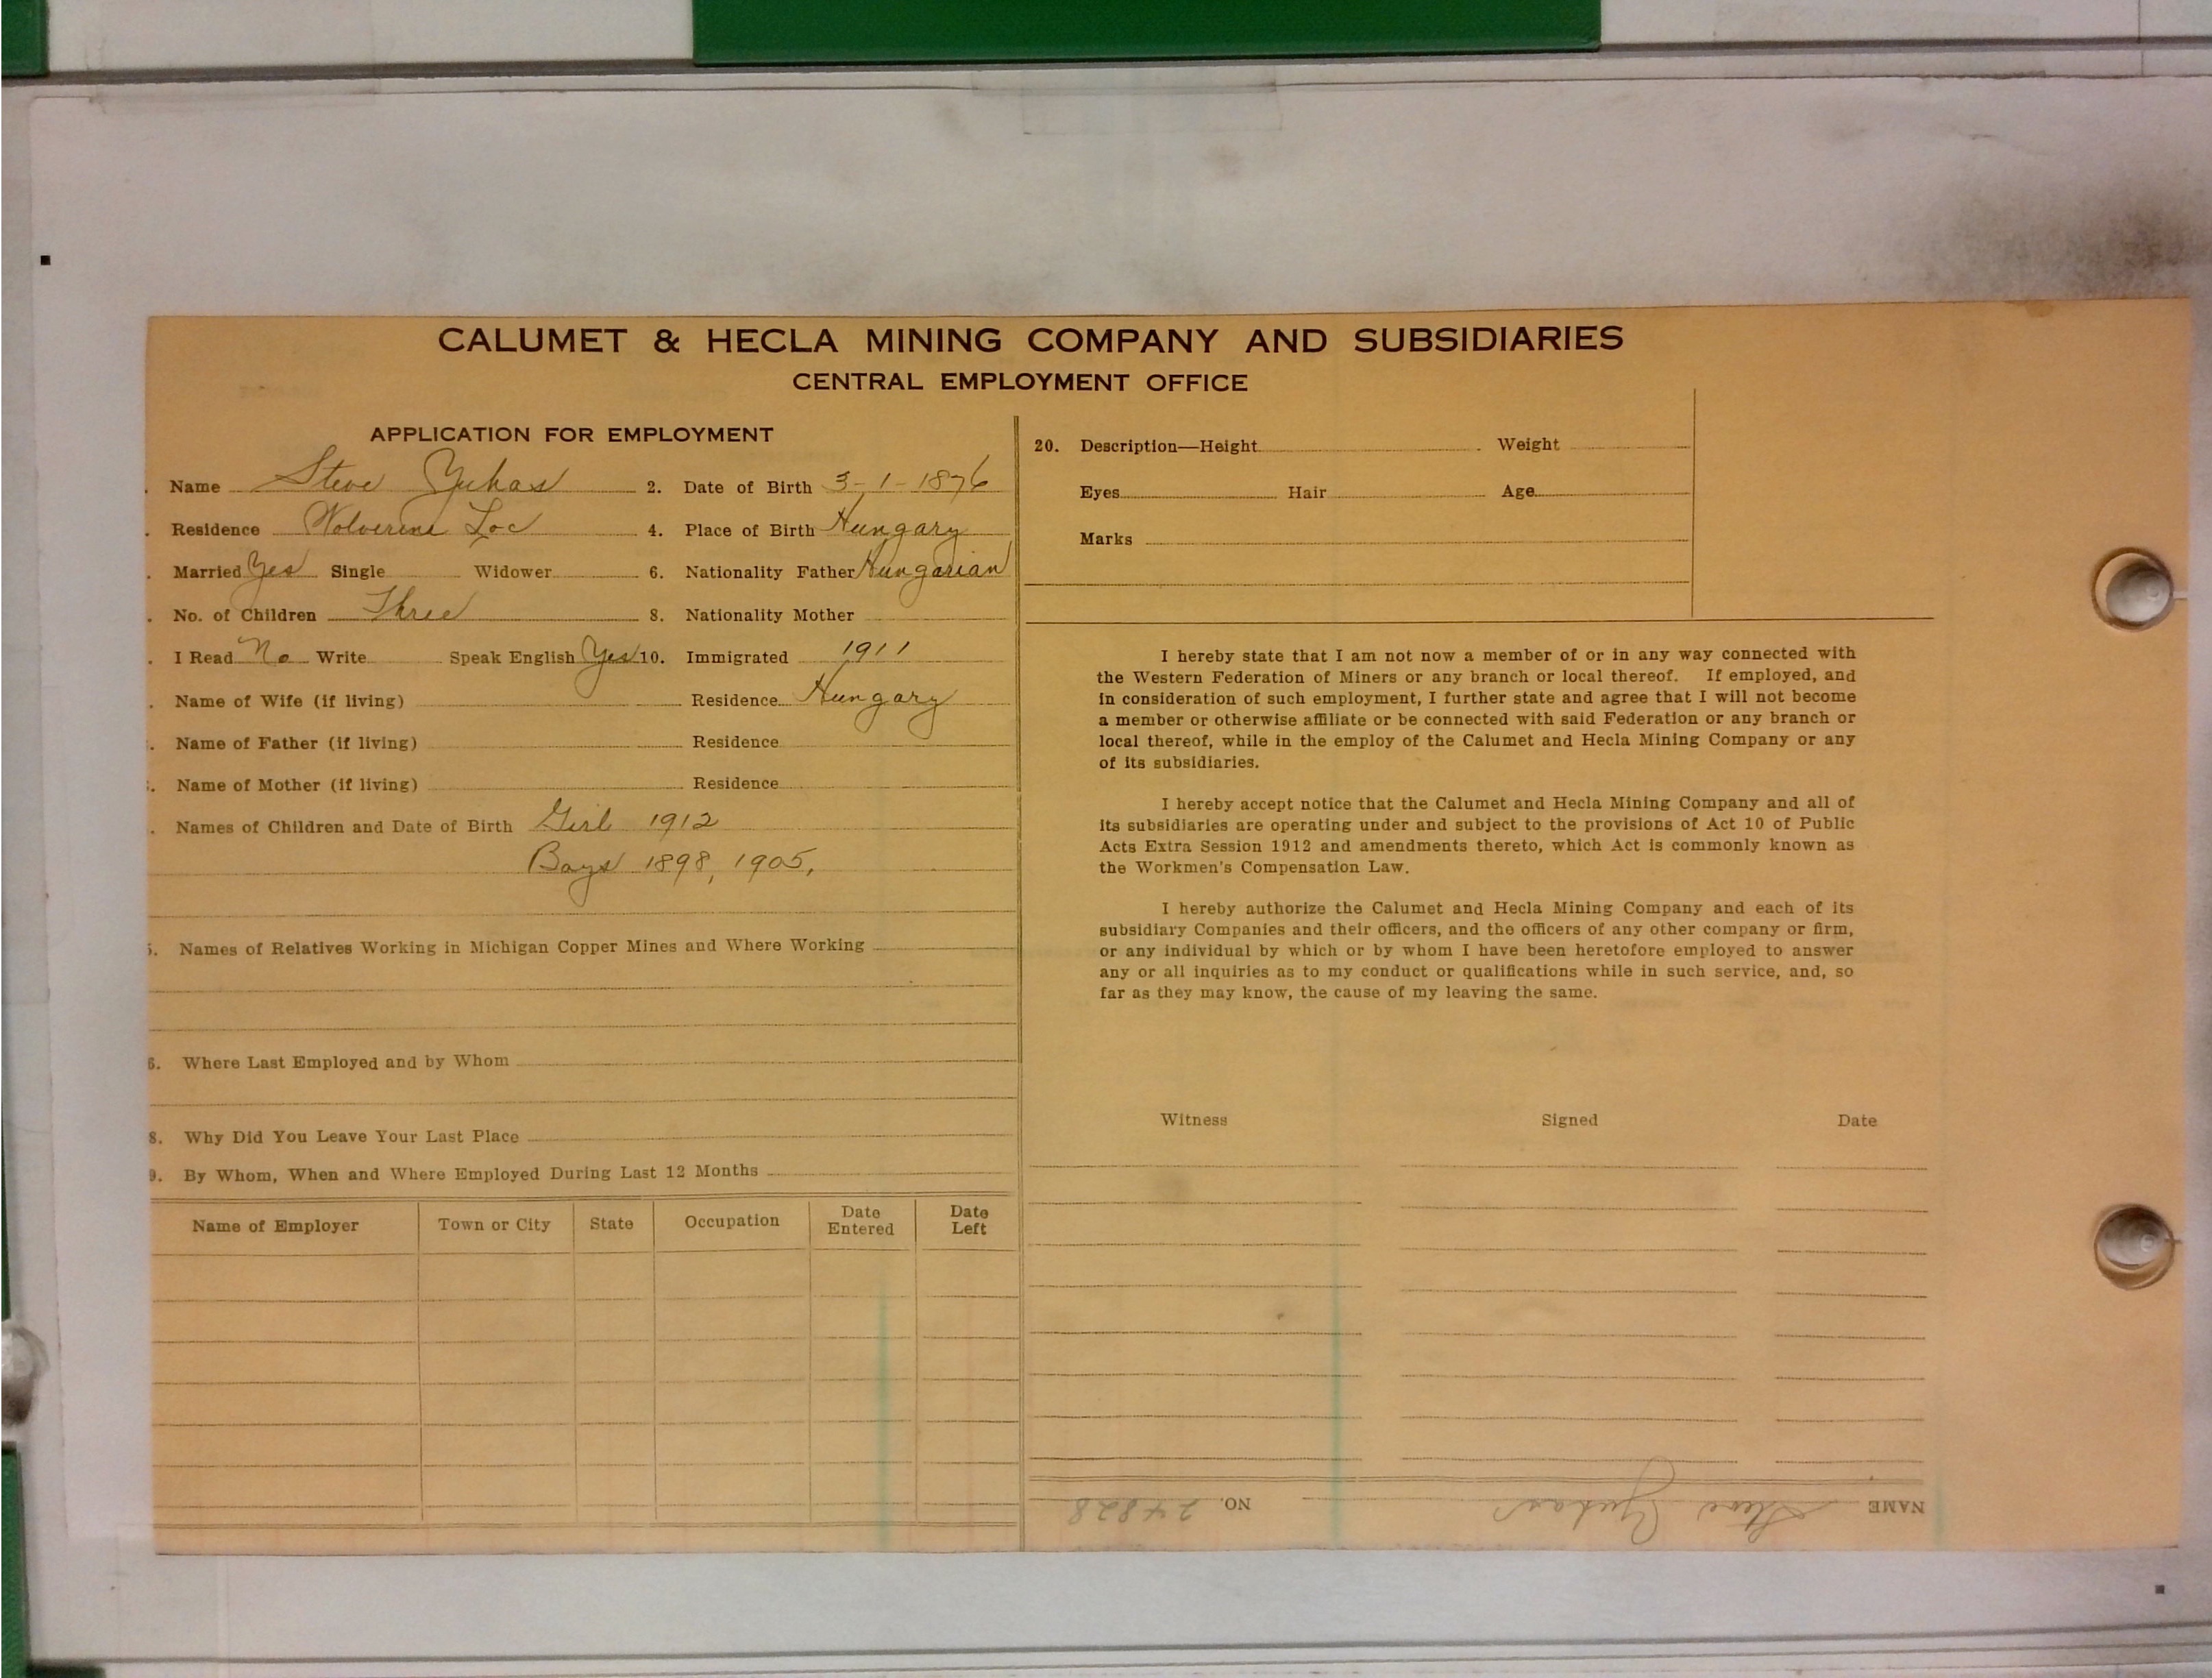 CALUMET & HECLA MINING COMPANY AND SUBSIDIARIES
CENTRAL EMPLOYMENT OFFICE
APPLICATION FOR EMPLOYMENT
. Name Steve Yuhas 2. Date of Birth 3-1-1876
. Residence Wolverine Loc 4. Place of Birth Hungary
. Married Yes Single Widower 6. Nationality Father Hungarian
. No. of Children Three 8. Nationality Mother
. I Read No Write Speak English Yes 10. Immigrated 1911
. Name of Wife (if living) Residence Hungary
. Name of Father (if living) Residence
. Name of Mother (if living) Residence
. Names of Children and Date of Birth Girl 1912
Boys 1898, 1905,
5. Names of Relatives Working in Michigan Copper Mines and Where Working
6. Where Last Employed and by Whom
8. Why Did You Leave Your Last Place
9. By Whom, When and Where Employed During Last 12 Months
Name of Employer Town or City State Occupation Date Entered Date Left
20. Description—Height Weight
Eyes Hair Age
Marks
I hereby state that I am not now a member of or in any way connected with
the Western Federation of Miners or any branch or local thereof. If employed, and
in consideration of such employment, I further state and agree that I will not become
a member or otherwise affiliate or be connected with said Federation or any branch or
local thereof, while in the employ of the Calumet and Hecla Mining Company or any
of its subsidiaries.
I hereby accept notice that the Calumet and Hecla Mining Company and all of
its subsidiaries are operating under and subject to the provisions of Act 10 of Public
Acts Extra Session 1912 and amendments thereto, which Act is commonly known as
the Workmen's Compensation Law.
I hereby authorize the Calumet and Hecla Mining Company and each of its
subsidiary Companies and their officers, and the officers of any other company or firm,
or any individual by which or by whom I have been heretofore employed to answer
any or all inquiries as to my conduct or qualifications while in such service, and, so
far as they may know, the cause of my leaving the same.
Witness Signed Date
NAME Steve Yuhas NO. 24828